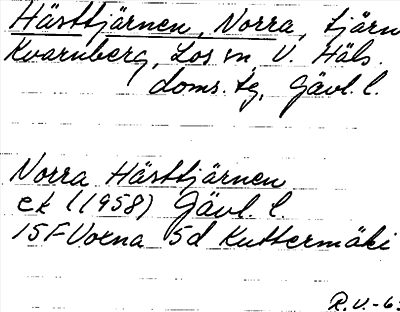 Hästtjärnen, Norra, tjärn
Kvarnberg, Los sn, V. Häls.
doms. tg, Gävl. l.
Norra Hästtjärnen
ek (1958) Gävl. l.
15F Voxna 5d Kuttermäki
R.V.-63